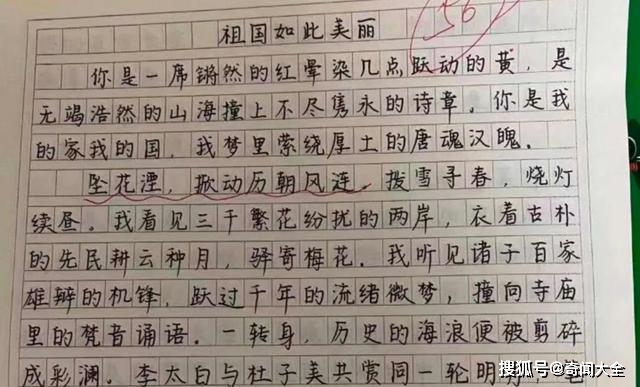 56
祖国如此美丽
你是一席锵然的红晕染几点跃动的黄，是
无竭浩然的山海撞上不尽隽永的诗章。你是我
的家我的国，我梦里萦绕厚土的唐魂汉魄。
坠花湮，掀动历朝风涟。拨雪寻春，烧灯
续昼。我看见三千繁花纷扰的两岸，衣着古朴
的先民耕云种月，驿寄梅花。我听见诸子百家
雄辩的机锋，跃过千年的流绪微梦，撞向寺庙
里的梵音诵语。一转身，历史的海浪便被剪碎
成彩澜。李太白与杜子美共赏同一轮明
搜狐号@奇闻大全